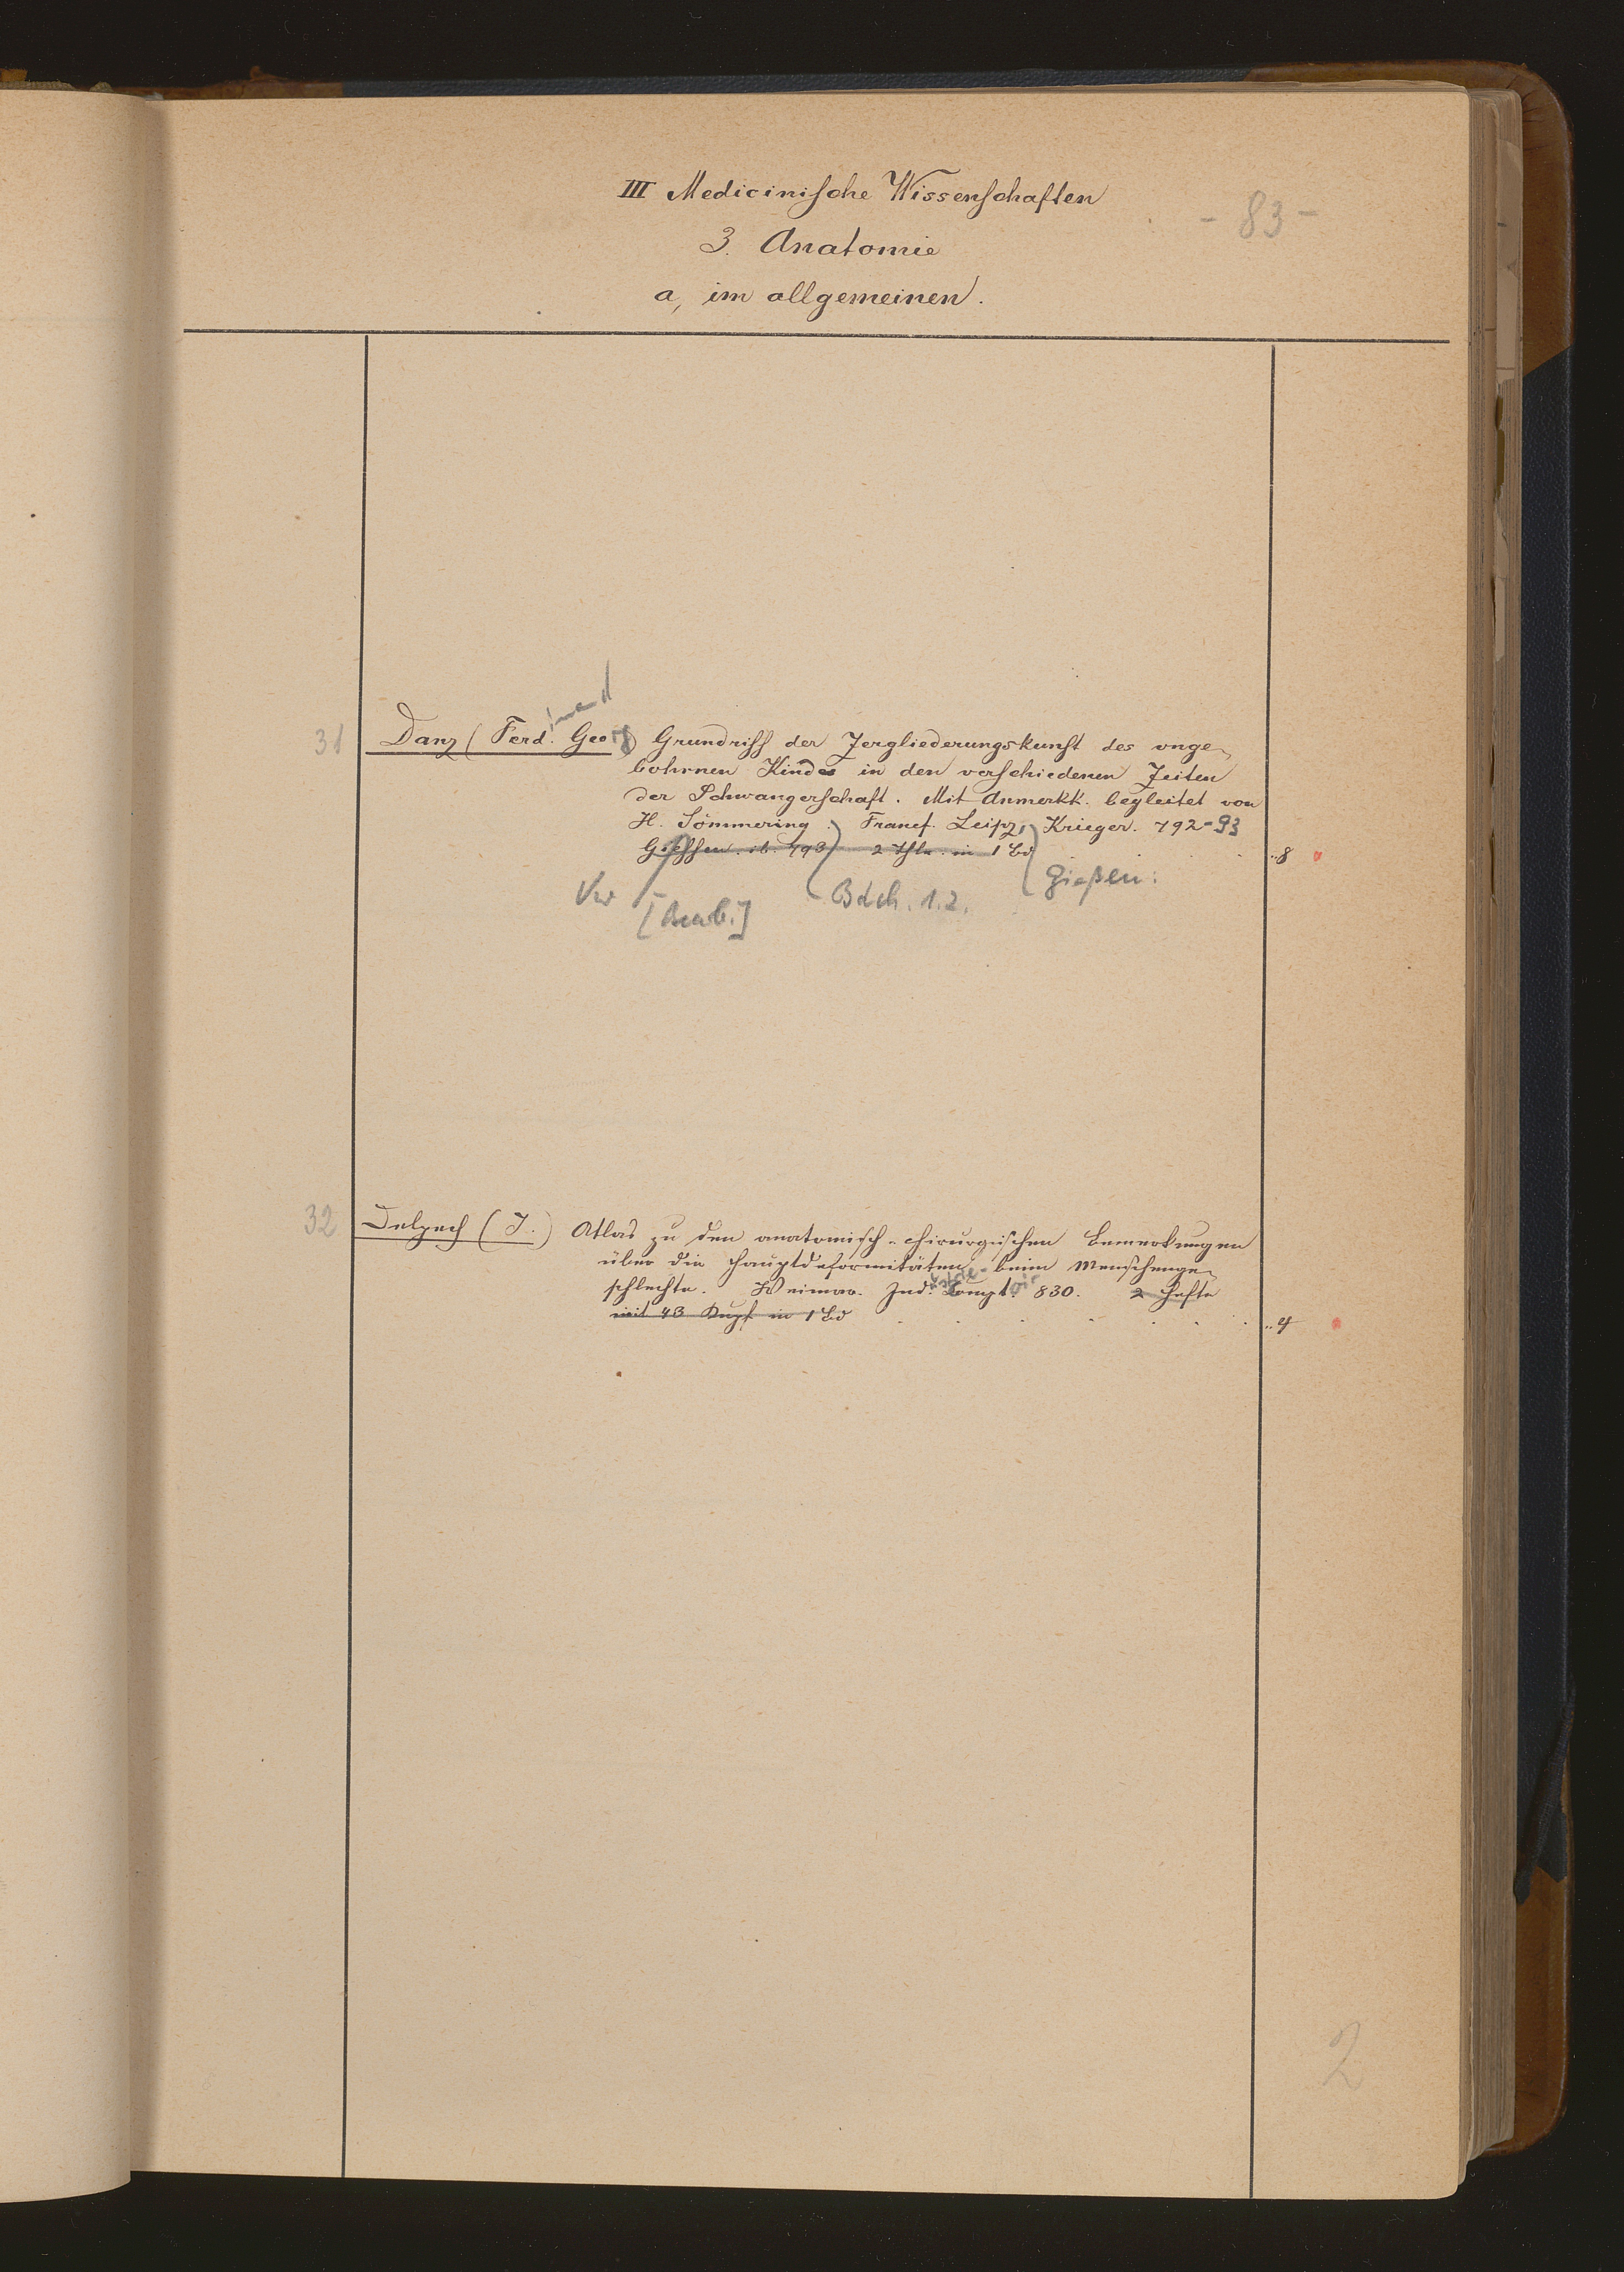 III Medicinische Wissenschaften
- 83 -
3. Anatomie
a, im allgemeinen.
inand
31 Danz (Ferd. Georg) Grundriss der Zergliederungskunst des unge-
bohrnen Kindes in den verschiedenen Zeiten
der Schwangerschaft. Mit Anmerkk. begleitet von
H. Sömmering. Francf. Leipz, Krieger. 792-93
Giessen. ib. 793 2 Thle. in 1 Bd ..8
Gießen:
Bdch. 1.2.
32 Delpech (J.) Atlas zu den anatomisch-chirurgischen Bemerkungen
über die Hauptdeformitäten beim Menschenge-
schlechte. Weimar. Industrie-Comptoir 830. 2 Hefte
mit 43 Kupf. in 1 Bd ..4
2